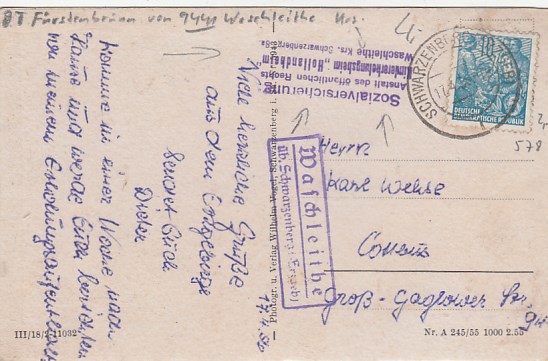 Fürstenbrunn von 9441 Waschleithe Krs.
Viele herzliche Grüße
aus dem Erzgebirge
sendet Euch
Dieter
17.4.56
Komme in einer Woche nach
Hause und werde Euch berichten
von meinem Erholungsaufenthalt.
III/18/2 11032
Photogr. u. Verlag Wilhelm Vogel, Schwarzenberg i.
Sozialversicherung
Anstalt des öffentlichen Rechts
Kindererholungsheim „Hollandheim“
Waschleithe Krs. Schwarzenberg/Sa.
Waschleithe
üb. Schwarzenberg (Erzgeb)
SCHWARZENBERG
10
DEUTSCHE
DEMOKRATISCHE REPUBLIK
578
Herrn
Cottbus
Groß-Gaglower Str.
Nr. A 245/55 1000 2.55